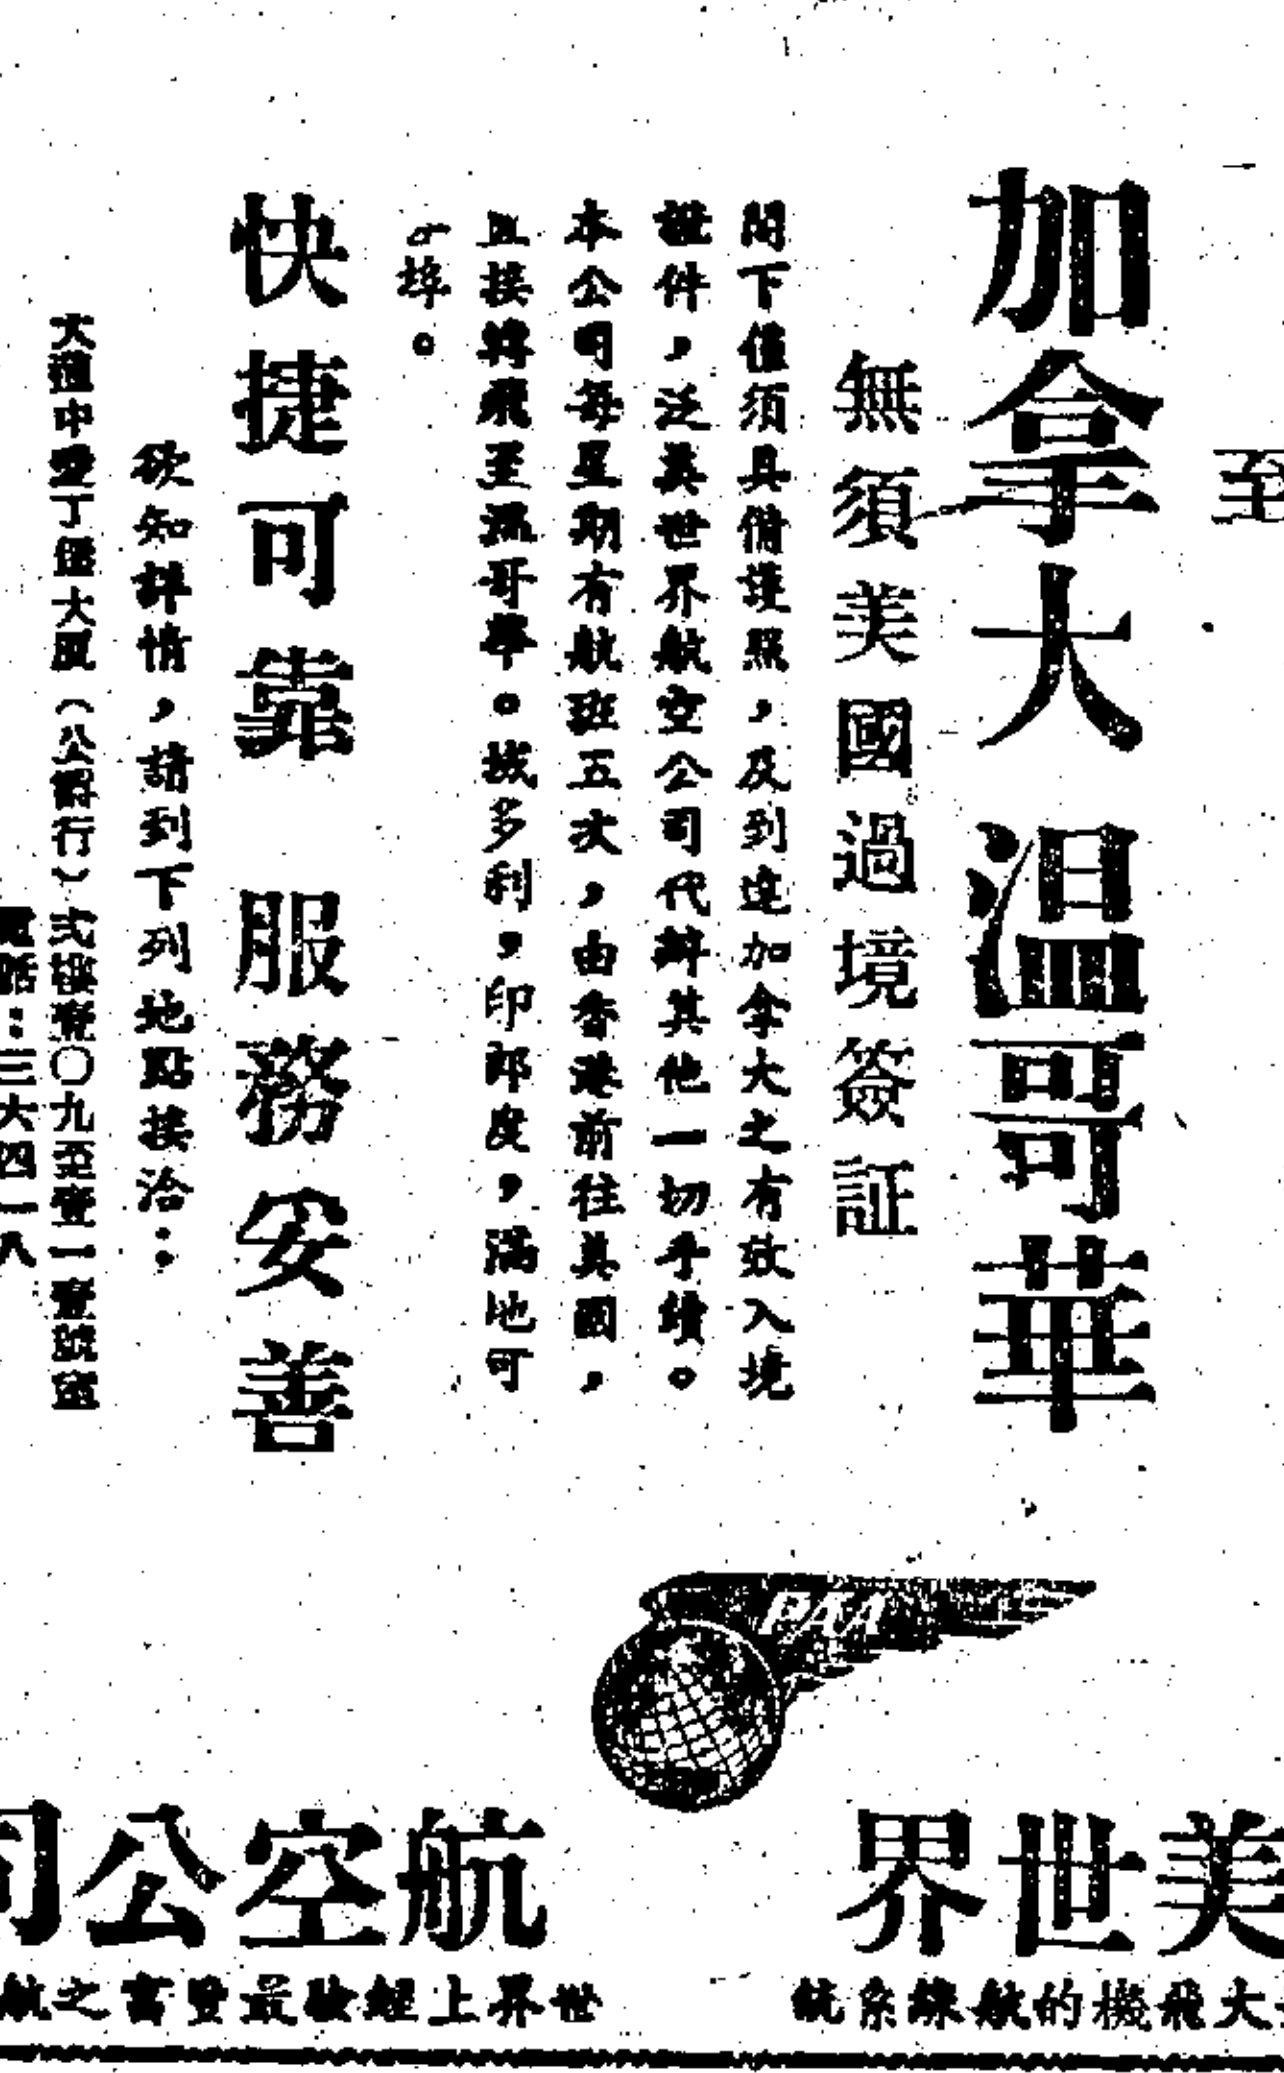 至
加拿大 温哥華
無須美國過境簽証
閣下僅須具備護照，及到達加拿大之有效入境
證件，泛美世界航空公司代辦其他一切手續。
本公司每星期有航班五次，由香港前往美國，
且接轉飛至溫哥華。域多利，印郎度，滿地可
埠。
快捷可靠 服務妥善
欲知詳情，請到下列地點接洽：
大種中愛丁堡大厦（公爵行）式樓壹〇九至壹一壹號室
電話：三六四一八
PAA
美世界
航空公司
大飛機的航線系統
世界上經驗最豐富之航